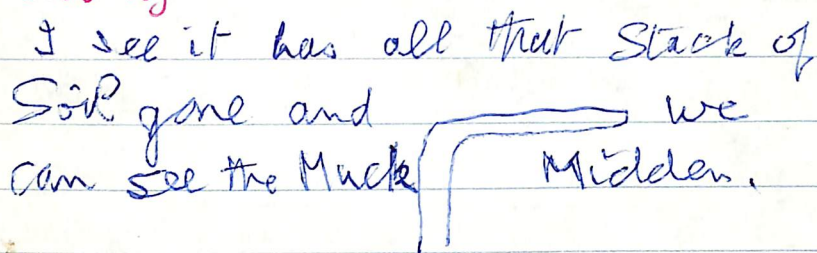 I see it has all that Stack of
Soil gone and we
can see the Muck Midden.